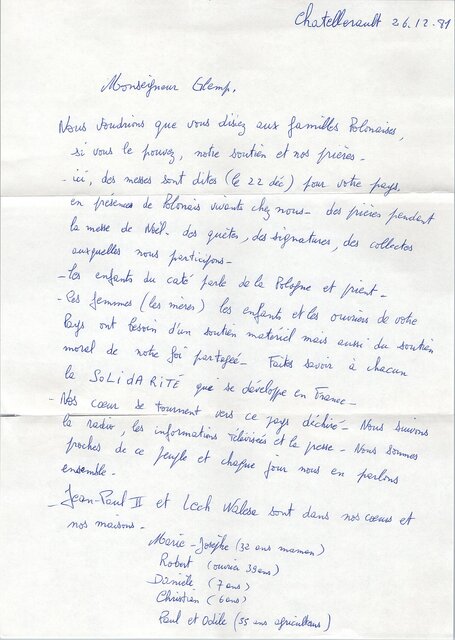 Chatellerault 26.12.81
Monseigneur Glemp,
Nous voudrions que vous disiez aux familles Polonaises,
si vous le pouvez, notre soutien et nos prières -
- ici, des messes sont dites (le 22 déc) pour votre pays,
en présence de Polonais vivants chez nous - des prières pendant
la messe de Noël - des quêtes, des signatures, des collectes
auxquelles nous participons -
- les enfants du caté parle de la Pologne et prient -
- les femmes (les mères) les enfants et les ouvriers de votre
Pays ont besoin d'un soutien matériel mais aussi du soutien
moral de notre foi partagée - Faites savoir à chacun
la SoLidARiTÉ qui se développe en France -
- Nos cœur se tournent vers ce pays déchiré - Nous suivons
la radio, les informations télévisées et la presse - Nous sommes
proches de ce peuple et chaque jour nous en parlons
ensemble -
- Jean-Paul II et Lech Walesa sont dans nos cœurs et
nos maisons -
Marie-Josèphe (32 ans maman)
Robert (ouvrier 39 ans)
Danièle (7 ans)
Christian (6 ans)
Paul et Odile (55 ans agriculteurs)